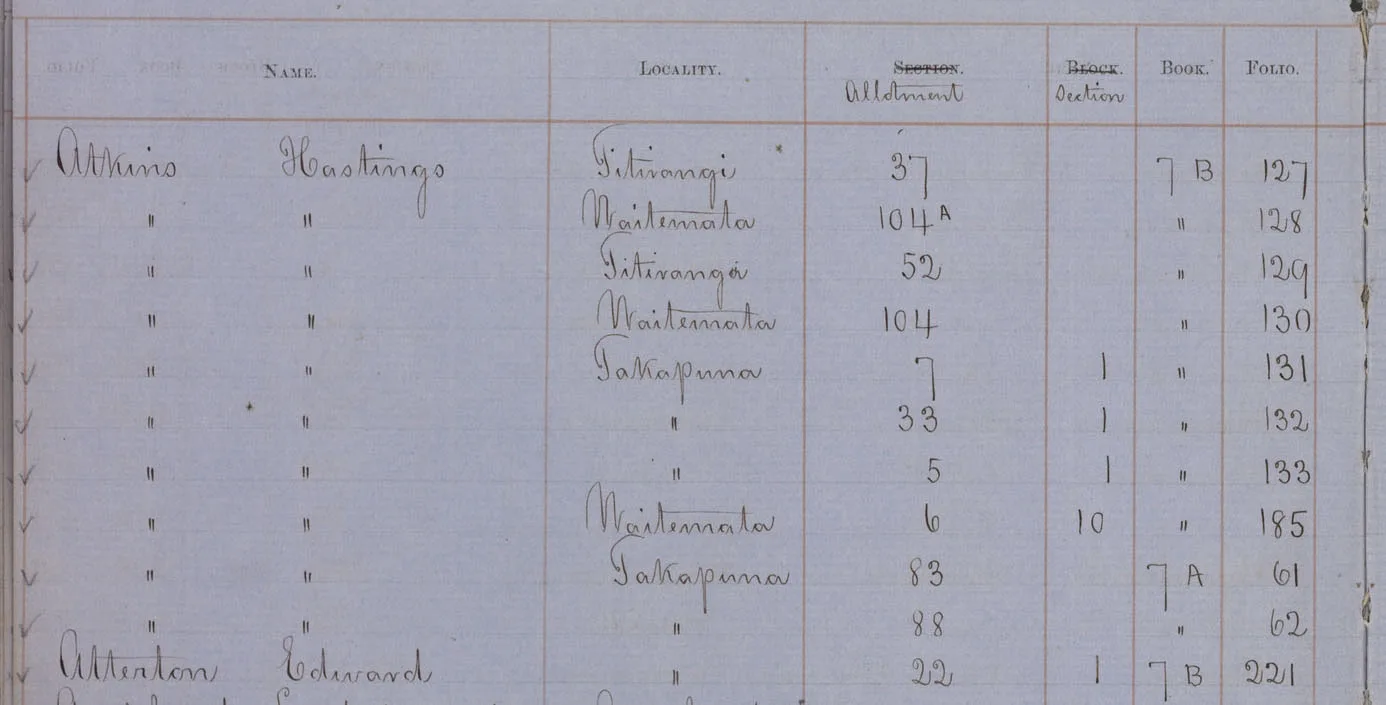 NAME. LOCALITY. SECTION. BLOCK. BOOK. FOLIO.
Allotment Section
Atkins Hastings Titirangi 37 7 B 127
" " Waitemata 104 A " 128
" " Titirangi 52 " 129
" " Waitemata 104 " 130
" " Takapuna 7 1 " 131
" " " 33 1 " 132
" " " 5 1 " 133
" " Waitemata 6 10 " 185
" " Takapuna 83 7 A 61
" " " 88 " 62
Atterton Edward " 22 1 7 B 221